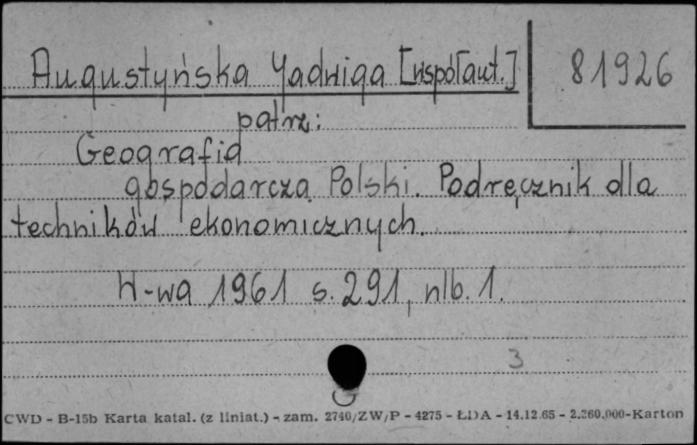 Augustyńska Jadwiga [współaut.]
81926
patrz:
Geografia
gospodarcza Polski. Podręcznik dla
techników ekonomicznych.
W-wa 1961 s. 291, nlb. 1.
3
CWD - B-15b Karta katal. (z liniat.) - zam. 2740/ZW/P - 4275 - ŁDA - 14.12.65 - 2.260.000-Karton